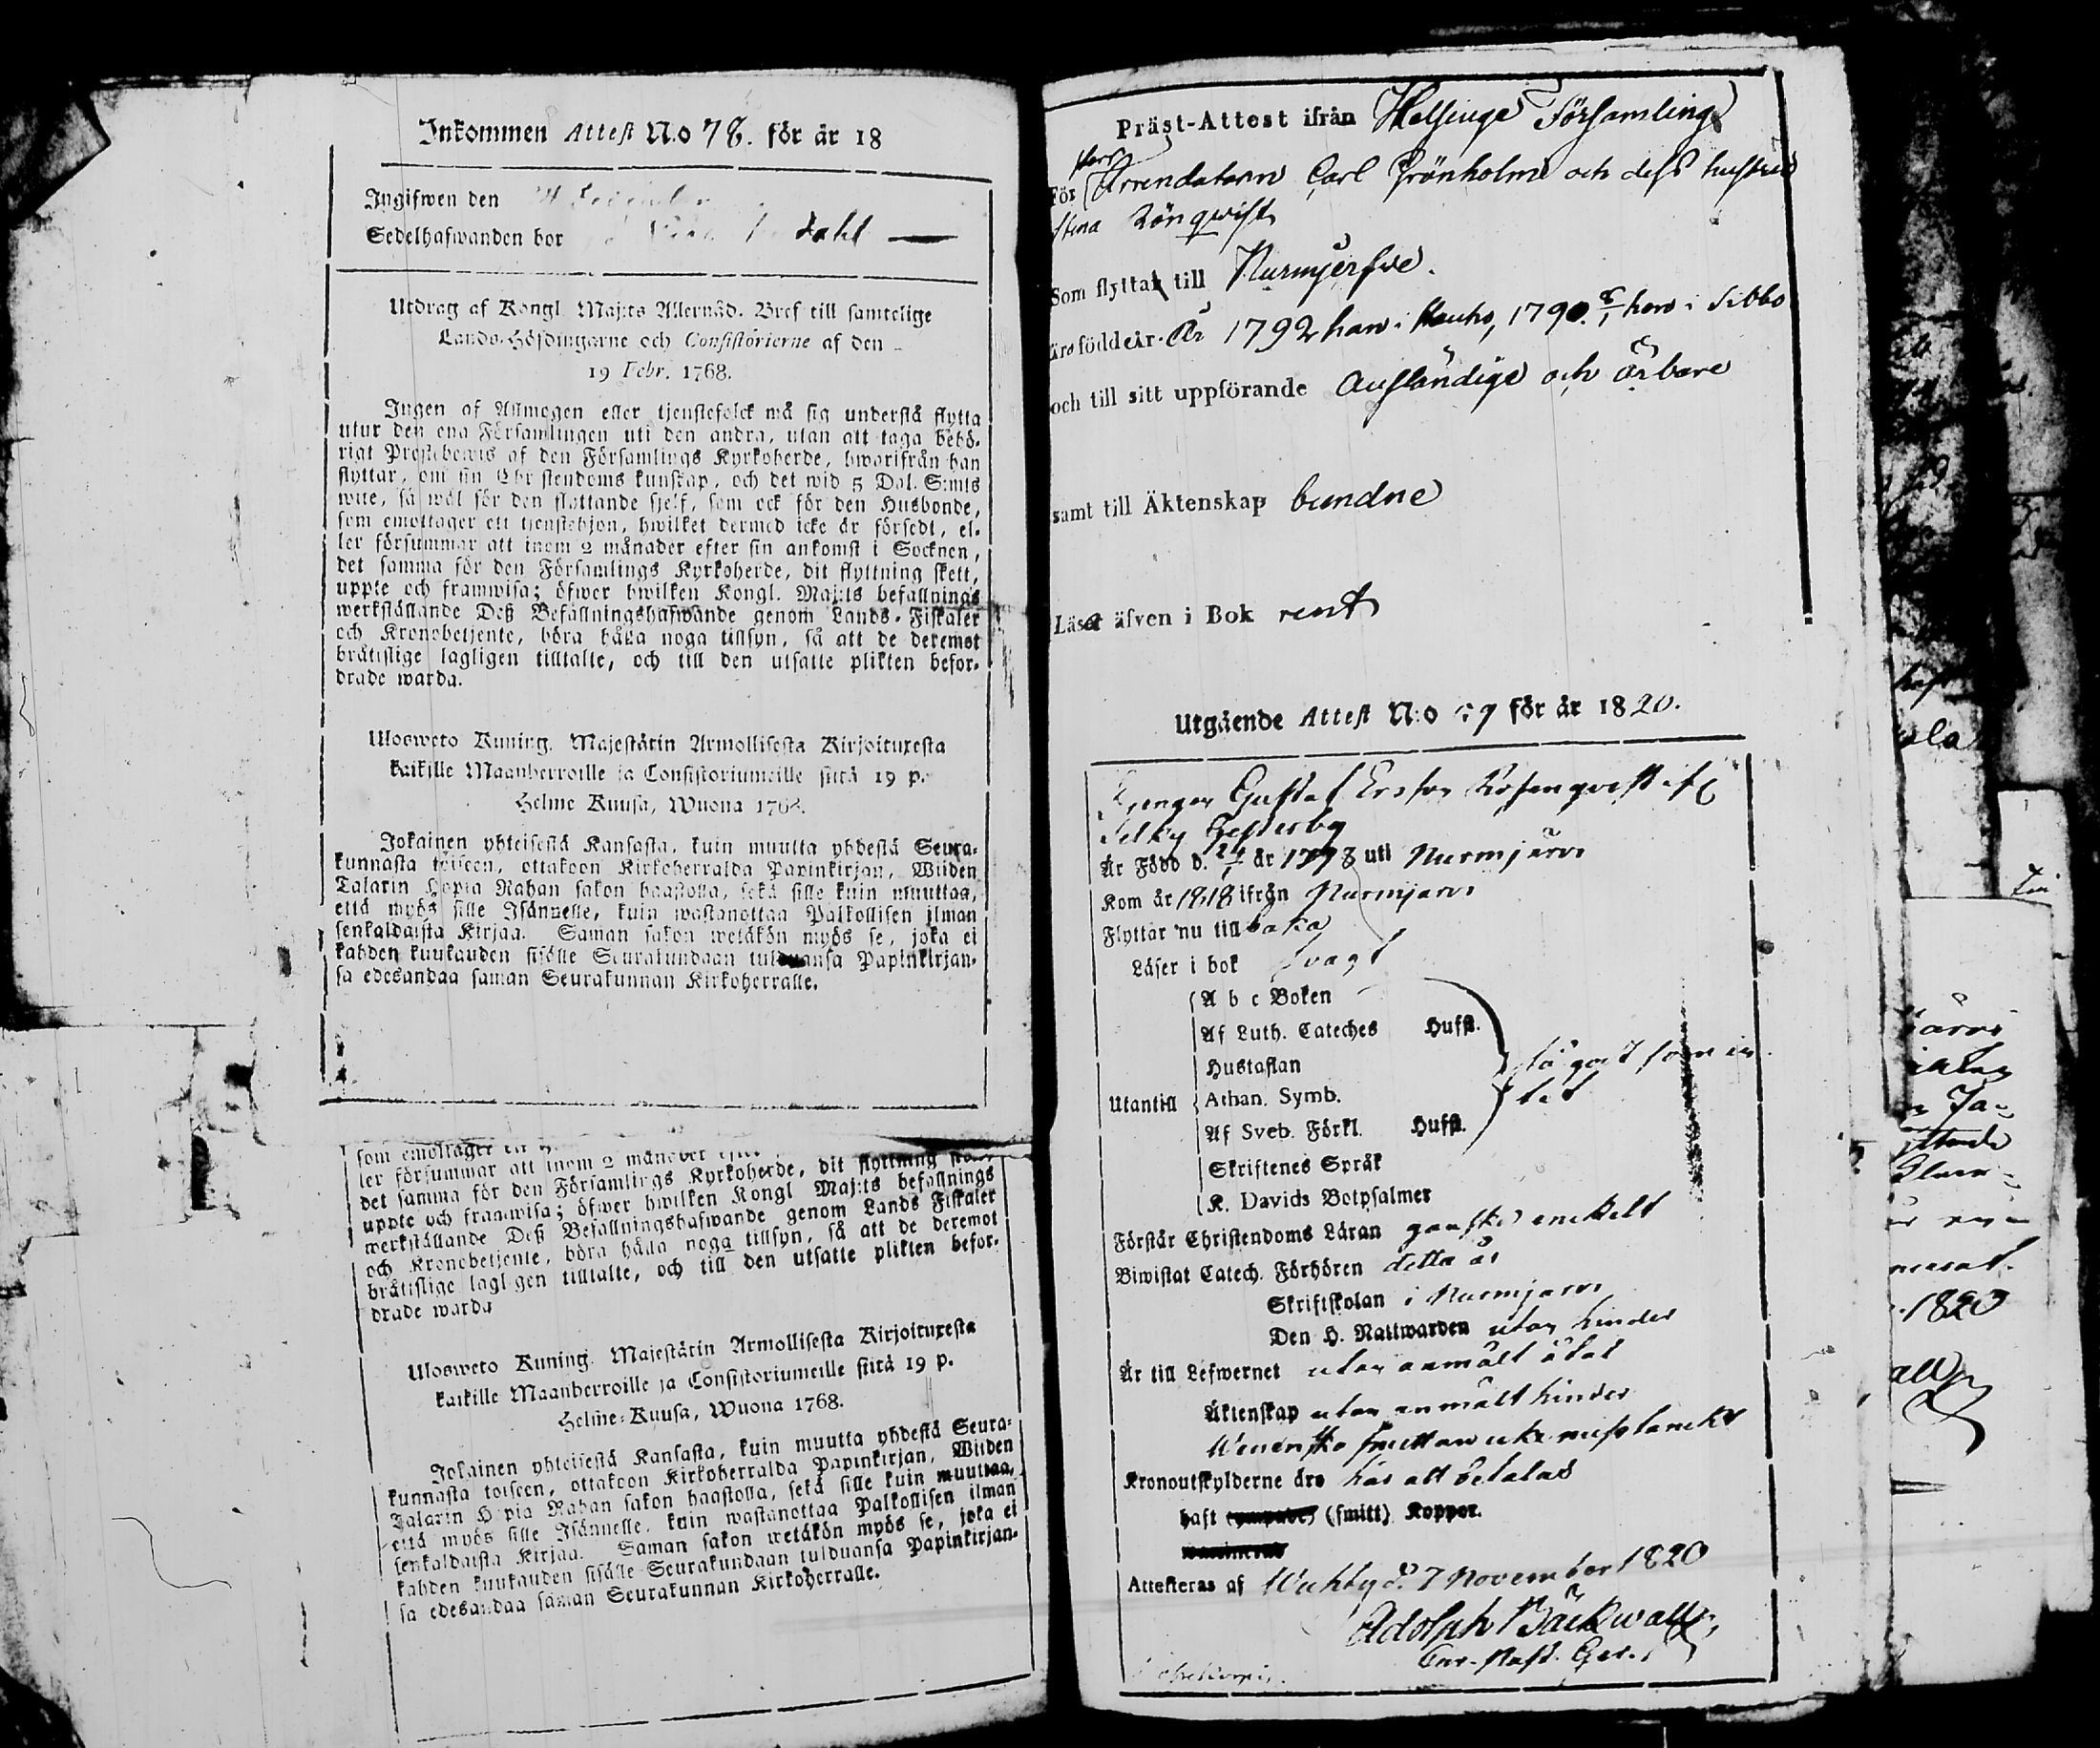 Inkommen Attest N:o 78. för år 18
Ingifwen den
Sedelhafwanden bor dahl
Utdrag af Kongl. Maj:ts Allernåd. Bref till samtelige
Lands-Höfdingarne och Consistórierne af den
19 Febr. 1768.
Ingen af Allmogen eller tjenstefolck må sig understå flytta
utur den ena Församlingen uti den andra, utan att taga behö-
rigt Prestebewis af den Församlings Kyrkoherde, hwarifrån han
flyttar, om sin Christendoms kunskap, och det wid 5 Dal. S:mts
wite, så wäl för den flyttande sjelf, som ock för den Husbonde,
som emottager ett tjenstehjon, hwilket dermed icke är försedt, el-
ler försummar att inom 2 månader efter sin ankomst i Socknen,
det samma för den Församlings Kyrkoherde, dit flyttning skett,
uppte och framwisa; öfwer hwilken Kongl. Maj:ts befallnings
werkställande Deß Befallningshafwande genom Lands-Fiskaler
och Kronobetjente, böra hålla noga tillsyn, så att de deremot
brätislige lagligen tilltalte, och till den utsatte plikten befor-
drade warda.
Ulosweto Kuning. Majestätin Armollisesta Kirjoituxesta
kaikille Maanherroille ja Consistoriumeille siitä 19 p.
Helme Kuusa, Wuona 1768.
Jokainen yhteisestä Kansasta, kuin muutta yhdestä Seura-
kunnasta toiseen, ottakoon Kirkoherralda Papinkirjan, Wiiden
Talarin Hopia Rahan sakon haastolla, sekä sille kuin muuttaa,
että myös sille Isännelle, kuin wastanottaa Palkollisen ilman
senkaldaista Kirjaa. Saman sakon wetäkön myös se, joka ei
kahden kuukauden sisälle Seurakundaan tulduansa Papinkirjan-
sa edesandaa saman Seurakunnan Kirkoherralle.
som emottager
ler försummar att inom 2 månader
det samma för den Församlings Kyrkoherde, dit flyttning
uppte och framwisa; öfwer hwilken Kongl Maj:ts befallnings
werkställande Deß Befallningshafwande genom Lands Fiskaler
och Kronobetjente, böra hålla noga tillsyn, så att de deremot
brätislige lagligen tilltalte, och till den utsatte plikten befor-
drade warda
Ulosweto Kuning. Majestätin Armollisesta Kirjoituxesta
kaikille Maanherroille ja Consistoriumeille siitä 19 p.
Helme-Kuusa, Wuona 1768.
Jokainen yhteisestä Kansasta, kuin muutta yhdestä Seura-
kunnasta toiseen, ottakoon Kirkoherralda Papinkirjan, Wiiden
Talarin Hopia Rahan sakon haastolla, sekä sille kuin muuttaa,
että myös sille Isännelle, kuin wastanottaa Palkollisen ilman
senkaldaista Kirjaa. Saman sakon wetäkön myös se, joka ei
kahden kuukauden sisälle Seurakundaan tulduansa Papinkirjan-
sa edesandaa saman Seurakunnan Kirkoherralle.
Präst-Attest ifrån Helsinge Församling
För Arrendatorn Carl Grönholm och dess hustru
Stina Rönqvist
Som flytta till Nurmijerfwe.
äro födde år 1792 han i Hauho, 1790 hon i Sibbo
och till sitt uppförande anständige och ärbare
samt till Äktenskap bundne
Läsa äfven i Bok rent
Utgående Attest N:o 59 för år 1820.
Drengen Gustaf Ersson Rosenqvist if.
Gesterby
Är Född d. 24 år 1798 uti Nurmjärvi
Kom år 1818 ifrån Nurmjarvi
Flyttar nu tillbaka
Läser i bok svagt
Utantill
A b c Boken
Af Luth. Cateches Hufst.
Hustaflan
Athan. Symb.
Af Sveb. Förkl. Hufst.
Skriftenes Språk
K. Davids Botpsalmer
så godt som in
tet
Förstår Christendoms Läran ganska enkelt
Biwistat Catech. Förhören detta år
Skriftskolan i Nurmjarvi
Den H. Nattwarden utan hinder
Är till Lefwernet utan anmält åtal
Äktenskap utan anmält hinder
Kronoutskylderne äro har att betalas
haft (smitt) Koppor.
Attesteras af Wichty d. 7 November 1820
Adolph Bäckwall
1820